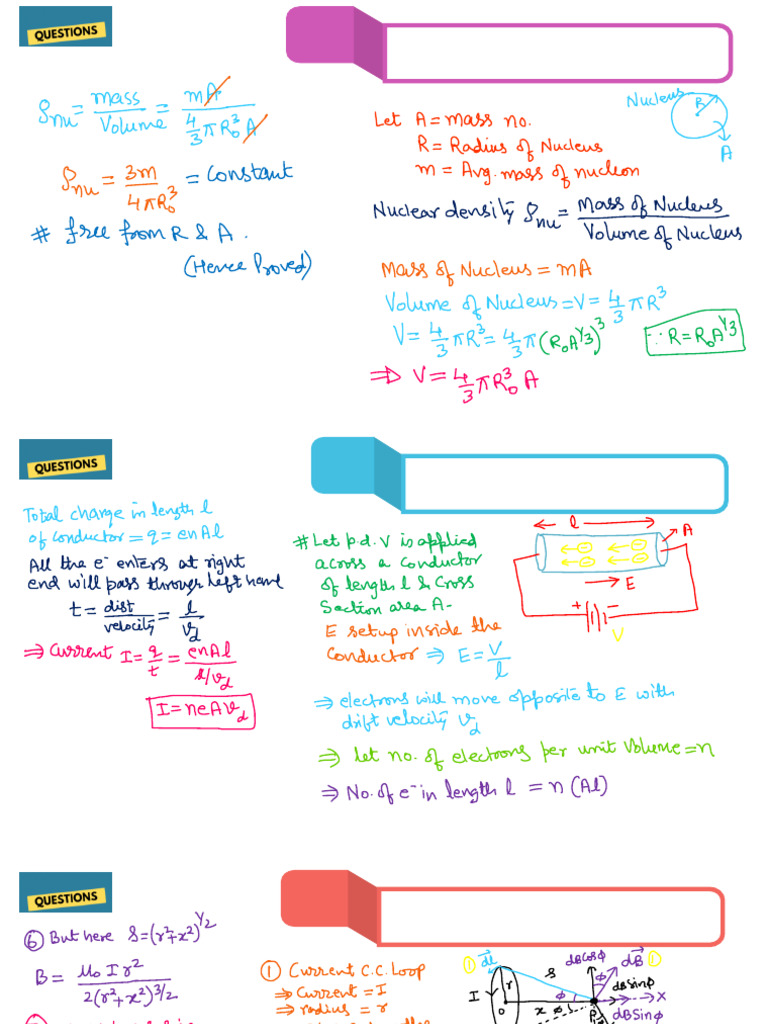 QUESTIONS
ρnu = mass/Volume = mA/(4/3 πR₀³A)
ρnu = 3m/4πR₀³ = Constant
# free from R & A.
(Hence Proved)
Nucleus
R
A
Let A = mass no.
R = Radius of Nucleus
m = Avg. mass of nucleon
Nuclear density ρnu = Mass of Nucleus/Volume of Nucleus
Mass of Nucleus = mA
Volume of Nucleus = V = 4/3 πR³
V = 4/3 πR³ = 4/3 π(R₀A^1/3)³
∵ R = R₀A^1/3
⇒ V = 4/3 πR₀³ A
QUESTIONS
Total charge in length l
of conductor = q = enAl
All the e⁻ enters at right
end will pass through left hand
t = dist/velocity = l/vd
⇒ Current I = q/t = enAl/(l/vd)
I = neAvd
# Let p.d. V is applied
across a conductor
of length l & Cross
Section area A-
E setup inside the
Conductor ⇒ E = V/l
l
A
E
+ −
V
⇒ electrons will move opposite to E with
drift velocity vd
⇒ let no. of electrons per unit Volume = n
⇒ No. of e⁻ in length l = n(Al)
QUESTIONS
⑥ But here s = (r²+x²)^1/2
B = μ₀Ir²/2(r²+x²)^3/2
① Current C.C. Loop
⇒ Current = I
⇒ radius = r
① dl
s
dBcosφ
dB ①
I
r
φ
φ
dBsinφ
O
x
P
X
dBsinφ